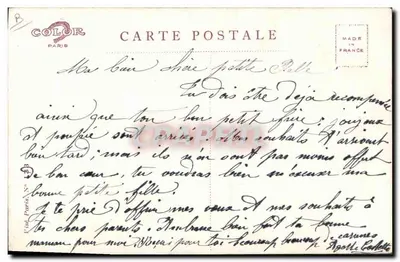 COLOR
PARIS
CARTE POSTALE
MADE
IN
FRANCE
Ma bien chère petite
Tu dois être déjà récompensée
ainsi que ton bon petit frère; joujoux
et poupée sont arrivés. Mes souhaits t'arrivent
bien tard; mais ils n'en sont pas moins
de bon cœur, tu voudras bien m'excuser ma
bonne petite fille.
Je te prie d'offrir mes vœux et mes souhaits à
tes chers parents. Embrasse bien fort ta bonne
maman pour moi pour toi beaucoup, beaucoup, caresses